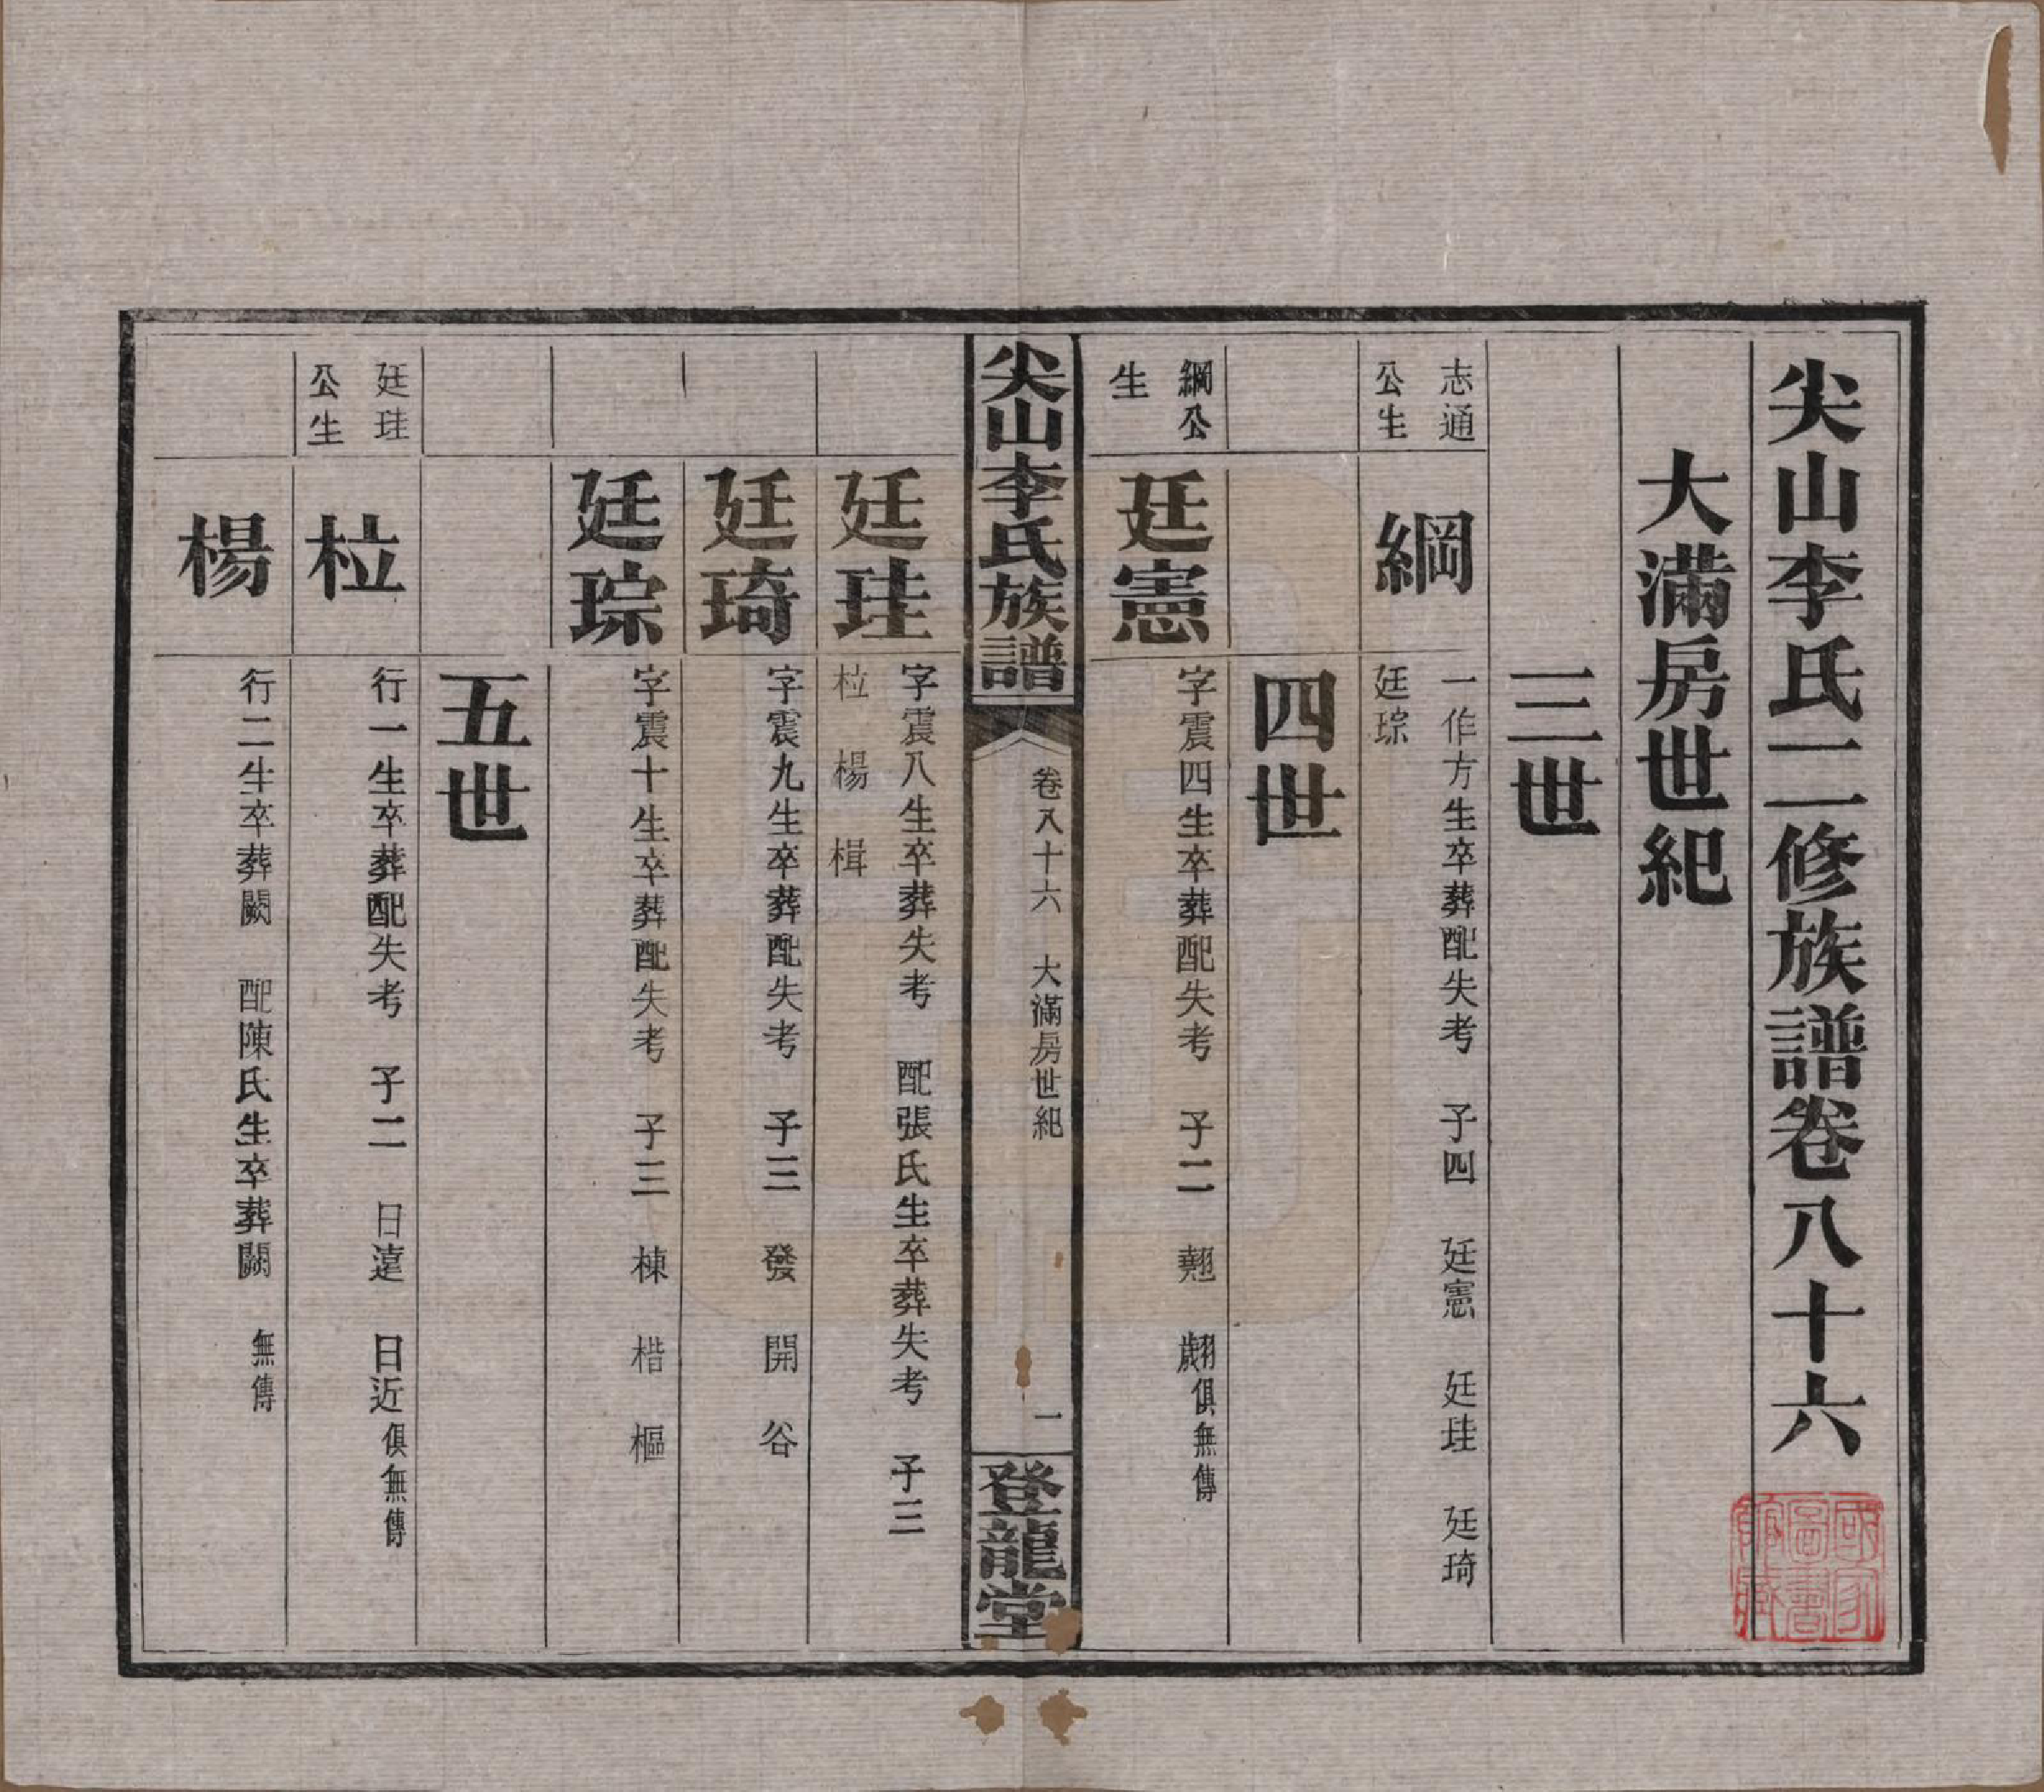 尖山李氏二修族譜卷八十六
大滿房世紀
三世
志通
公生
綱
一作方生卒葬配失考　子四　廷憲　廷珪　廷琦
廷琮
四世
綱公
生
廷憲
字震四生卒葬配失考　子二　翹　翽俱無傳
尖山李氏族譜
卷八十六　大滿房世紀
一
登龍堂
廷珪
字震八生卒葬失考　配張氏生卒葬失考　子三
柆　楊　楫
廷琦
字震九生卒葬配失考　子三　發　開　谷
廷琮
字震十生卒葬配失考　子三　棟　楷　樞
五世
廷珪
公生
柆
行一生卒葬配失考　子二　日遠　日近俱無傳
楊
行二生卒葬闕　配陳氏生卒葬闕　無傳
國家
圖書
館藏